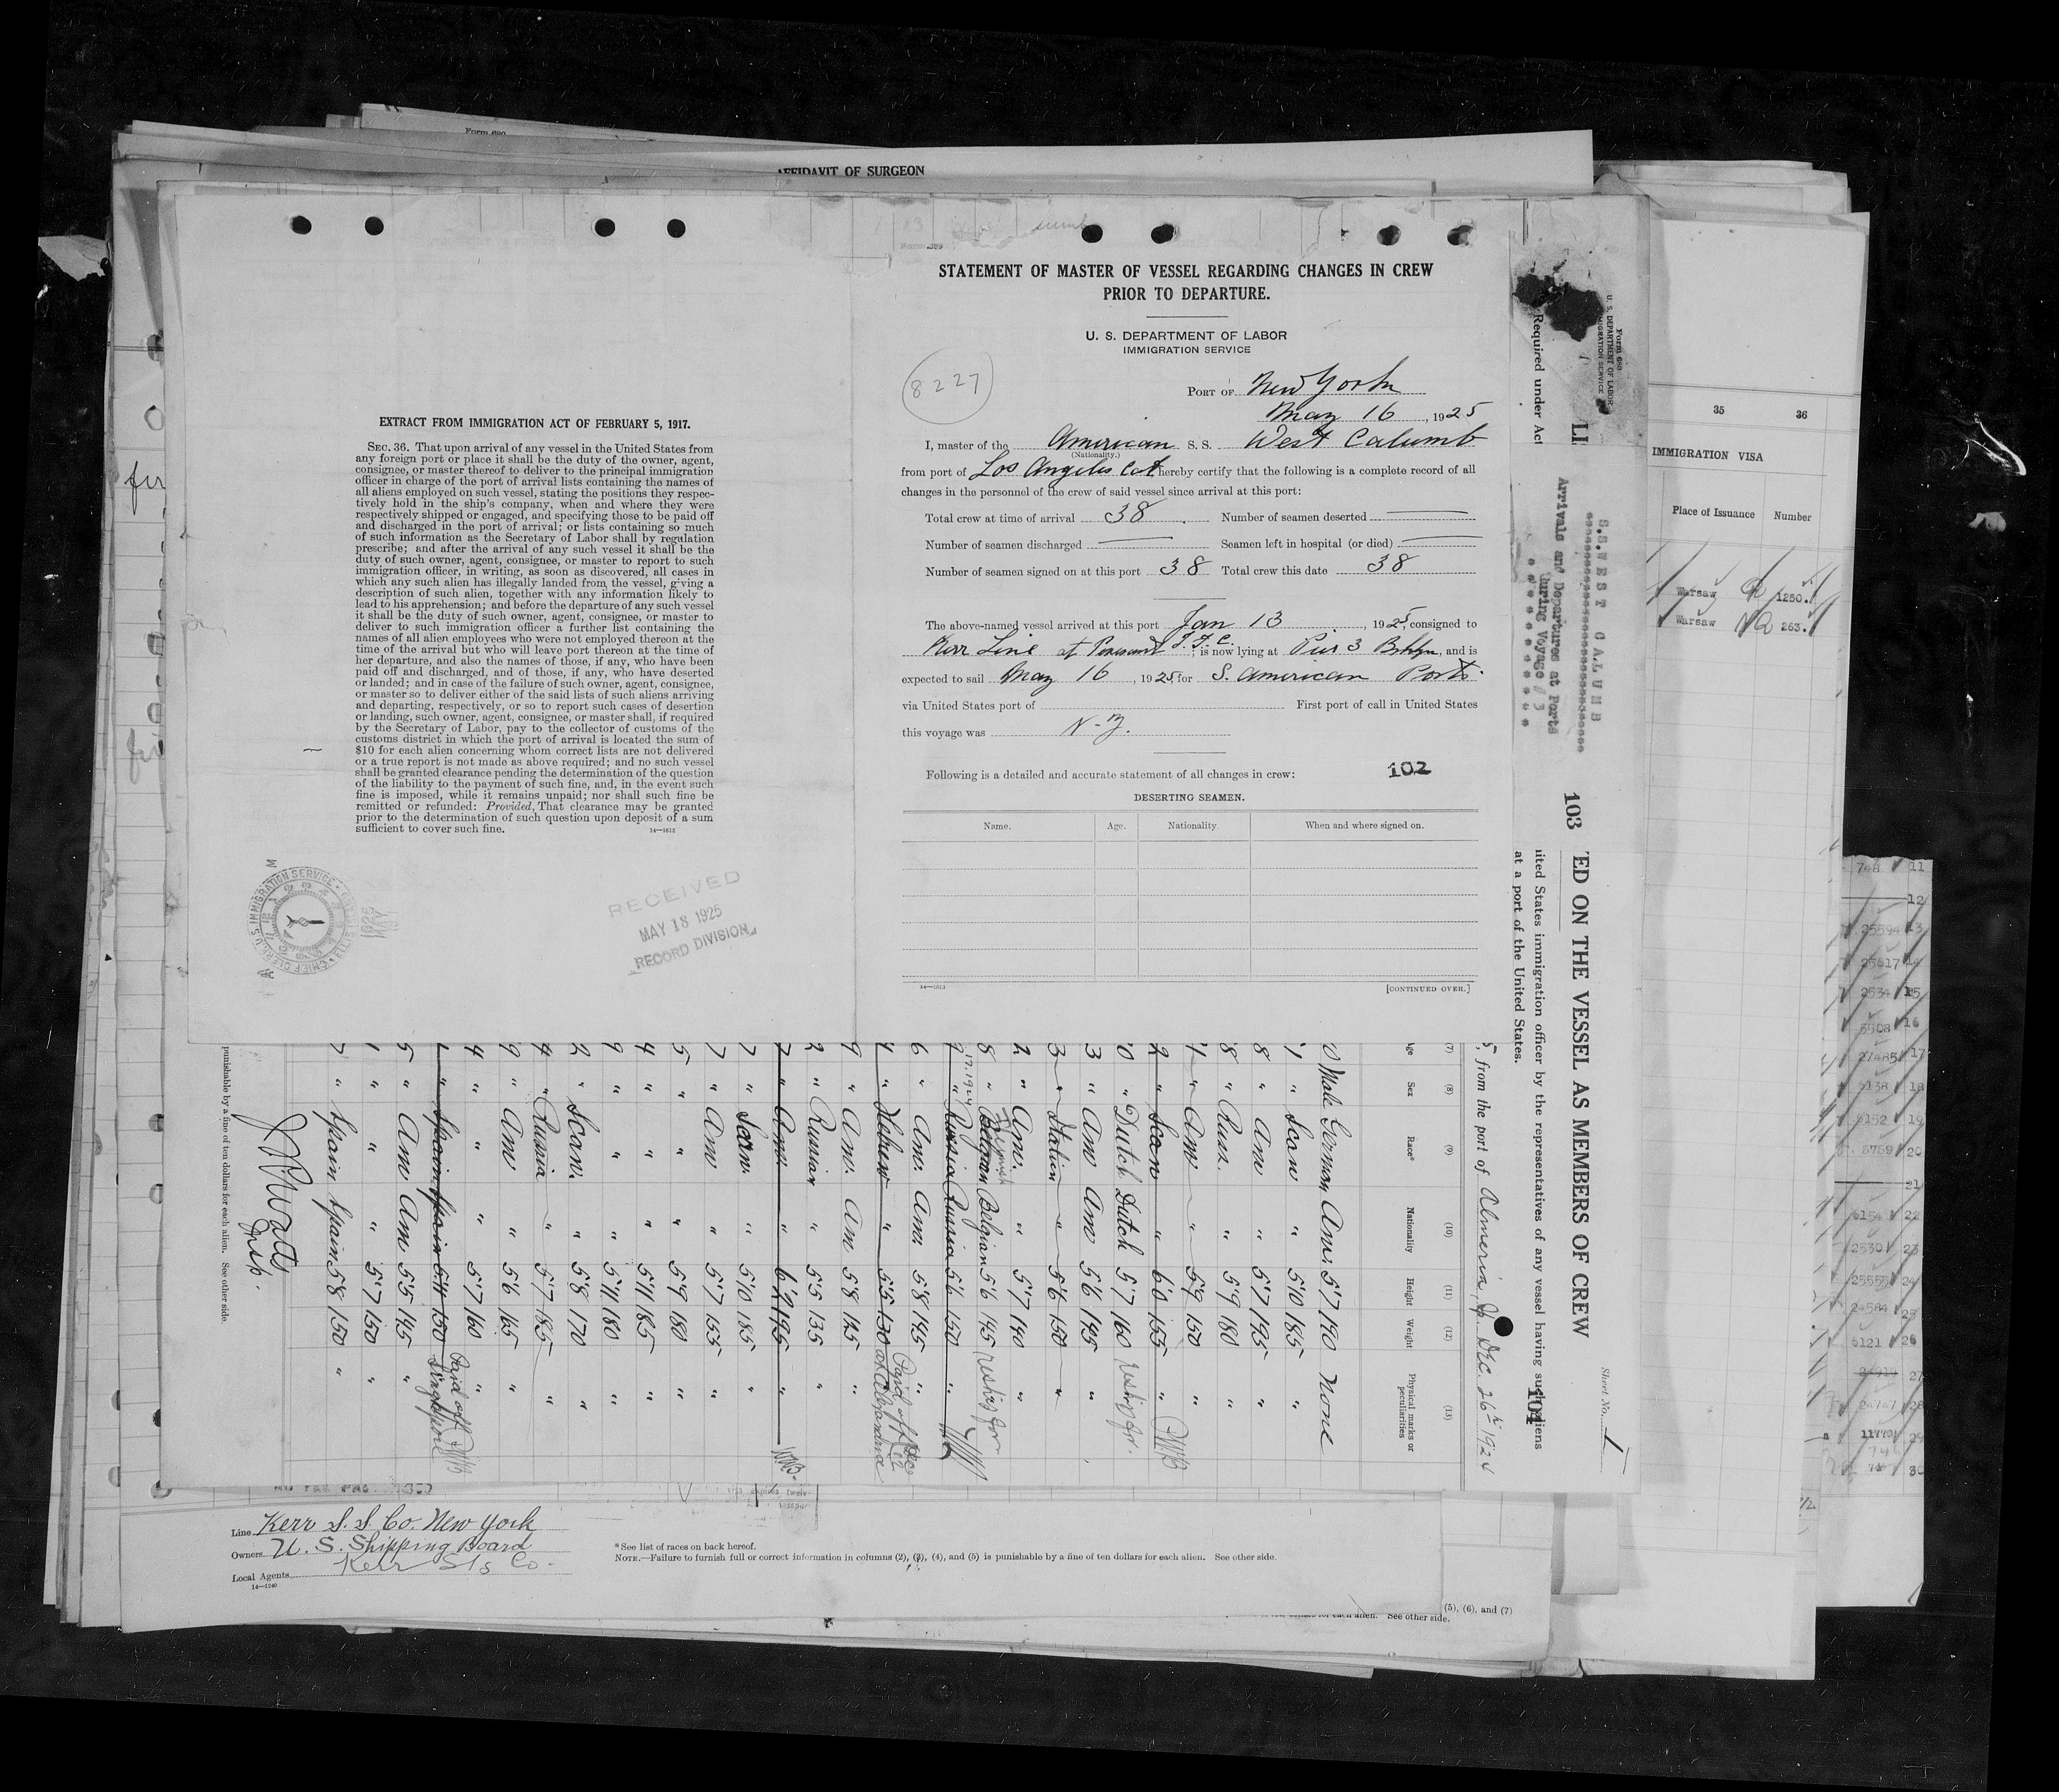 Form 680
AFFIDAVIT OF SURGEON
EXTRACT FROM IMMIGRATION ACT OF FEBRUARY 5, 1917.
SEC. 36. That upon arrival of any vessel in the United States from
any foreign port or place it shall be the duty of the owner, agent,
consignee, or master thereof to deliver to the principal immigration
officer in charge of the port of arrival lists containing the names of
all aliens employed on such vessel, stating the positions they respec-
tively hold in the ship's company, when and where they were
respectively shipped or engaged, and specifying those to be paid off
and discharged in the port of arrival; or lists containing so much
of such information as the Secretary of Labor shall by regulation
prescribe; and after the arrival of any such vessel it shall be the
duty of such owner, agent, consignee, or master to report to such
immigration officer, in writing, as soon as discovered, all cases in
which any such alien has illegally landed from the vessel, giving a
description of such alien, together with any information likely to
lead to his apprehension; and before the departure of any such vessel
it shall be the duty of such owner, agent, consignee, or master to
deliver to such immigration officer a further list containing the
names of all alien employees who were not employed thereon at the
time of the arrival but who will leave port thereon at the time of
her departure, and also the names of those, if any, who have been
paid off and discharged, and of those, if any, who have deserted
or landed; and in case of the failure of such owner, agent, consignee,
or master so to deliver either of the said lists of such aliens arriving
and departing, respectively, or so to report such cases of desertion
or landing, such owner, agent, consignee, or master shall, if required
by the Secretary of Labor, pay to the collector of customs of the
customs district in which the port of arrival is located the sum of
$10 for each alien concerning whom correct lists are not delivered
or a true report is not made as above required; and no such vessel
shall be granted clearance pending the determination of the question
of the liability to the payment of such fine, and, in the event such
fine is imposed, while it remains unpaid; nor shall such fine be
remitted or refunded: Provided, That clearance may be granted
prior to the determination of such question upon deposit of a sum
sufficient to cover such fine.
14—1612
RECEIVED
MAY 18 1925
RECORD DIVISION
STATEMENT OF MASTER OF VESSEL REGARDING CHANGES IN CREW
PRIOR TO DEPARTURE.
U. S. DEPARTMENT OF LABOR
IMMIGRATION SERVICE
8227
PORT OF New York
May 16, 1925
I, master of the American S. S. West Calumb
(Nationality.)
from port of Los Angeles Cal hereby certify that the following is a complete record of all
changes in the personnel of the crew of said vessel since arrival at this port:
Total crew at time of arrival 38. Number of seamen deserted
Number of seamen discharged Seamen left in hospital (or died)
Number of seamen signed on at this port 38 Total crew this date 38
The above-named vessel arrived at this port Jan 13, 1925, consigned to
Kerr Line at; is now lying at Pier 3 Bklyn, and is
expected to sail May 16, 1925 for S. American Ports.
via United States port of First port of call in United States
this voyage was N-Y.
Following is a detailed and accurate statement of all changes in crew: 102
DESERTING SEAMEN.
Name. Age. Nationality When and where signed on.
14—1612 [CONTINUED OVER.]
Form 689
U. S. DEPARTMENT OF LABOR
IMMIGRATION SERVICE
S.S. WEST CALUMB
Arrivals and Departures at Ports
during Voyage # 3
103
ED ON THE VESSEL AS MEMBERS OF CREW
Required under Act
nited States immigration officer by the representatives of any vessel having such aliens
at a port of the United States.
104
Sheet No. 1
5, from the port of Almeria, Dec. 26th 1924
(7) (8) (9) (10) (11) (12) (13)
Age Sex Race* Nationality Height Weight Physical marks or peculiarities
0 Male German Am. 5'7 190 None
1 " Scan " 5'10 185 "
8 " Am " 5'7 195 "
8 " Russ. " 5'9 180 "
1 " Am " 5'9 150 "
2 " Scan " 6'0 155 "
0 " Dutch Dutch 5'7 160 reship for.
3 " Am Am 5'6 195 "
3 " Italian " 5'6 150 "
2 " Am. " 5'7 140 "
8 " Belgian Flemish Belgian 5'6 145 reship for
9 " Russia Russia 5'6 150 "
6 " Am. Am. 5'8 145 "
4 " Hebrew " 5'5 130 Paid off Dec 12 at Alexandria
9 " Am. Am 5'8 145 "
2 " Russian " 5'5 135 "
7 " Am. " 6'2 195 "
7 " Scan. " 5'10 185 "
7 " Am " 5'7 155 "
5 " " " 5'9 180 "
4 " " " 5'11 185 "
9 " " " 5'11 180 "
2 " Scan. " 5'8 170 "
4 " Russia " 5'7 185 "
9 " Am " 5'6 165 "
4 " " " 5'7 160 "
1 " Spain Spain 5'4 150 Paid off Singapore
5 " Am Am 5'5 145 "
1 " " " 5'7 150 "
7 " Spain Spain 5'8 150 "
punishable by a fine of ten dollars for each alien. See other side.
35 36
IMMIGRATION VISA
Place of Issuance Number
Warsaw 1250.
Warsaw 263.
748 11
12
25594 13
25617 14
2534 15
5508 16
27485 17
6138 18
6152 19
5759 20
21
6154 22
2530 23
25555 24
24584 25
6121 26
27
24747 28
29
30
Line Kerr S.S. Co. New York
Owners U. S. Shipping Board
Local Agents Kerr S/s Co.
14—1240
*See list of races on back hereof.
NOTE.—Failure to furnish full or correct information in columns (2), (3), (4), and (5) is punishable by a fine of ten dollars for each alien. See other side.
(5), (6), and (7)
See other side.